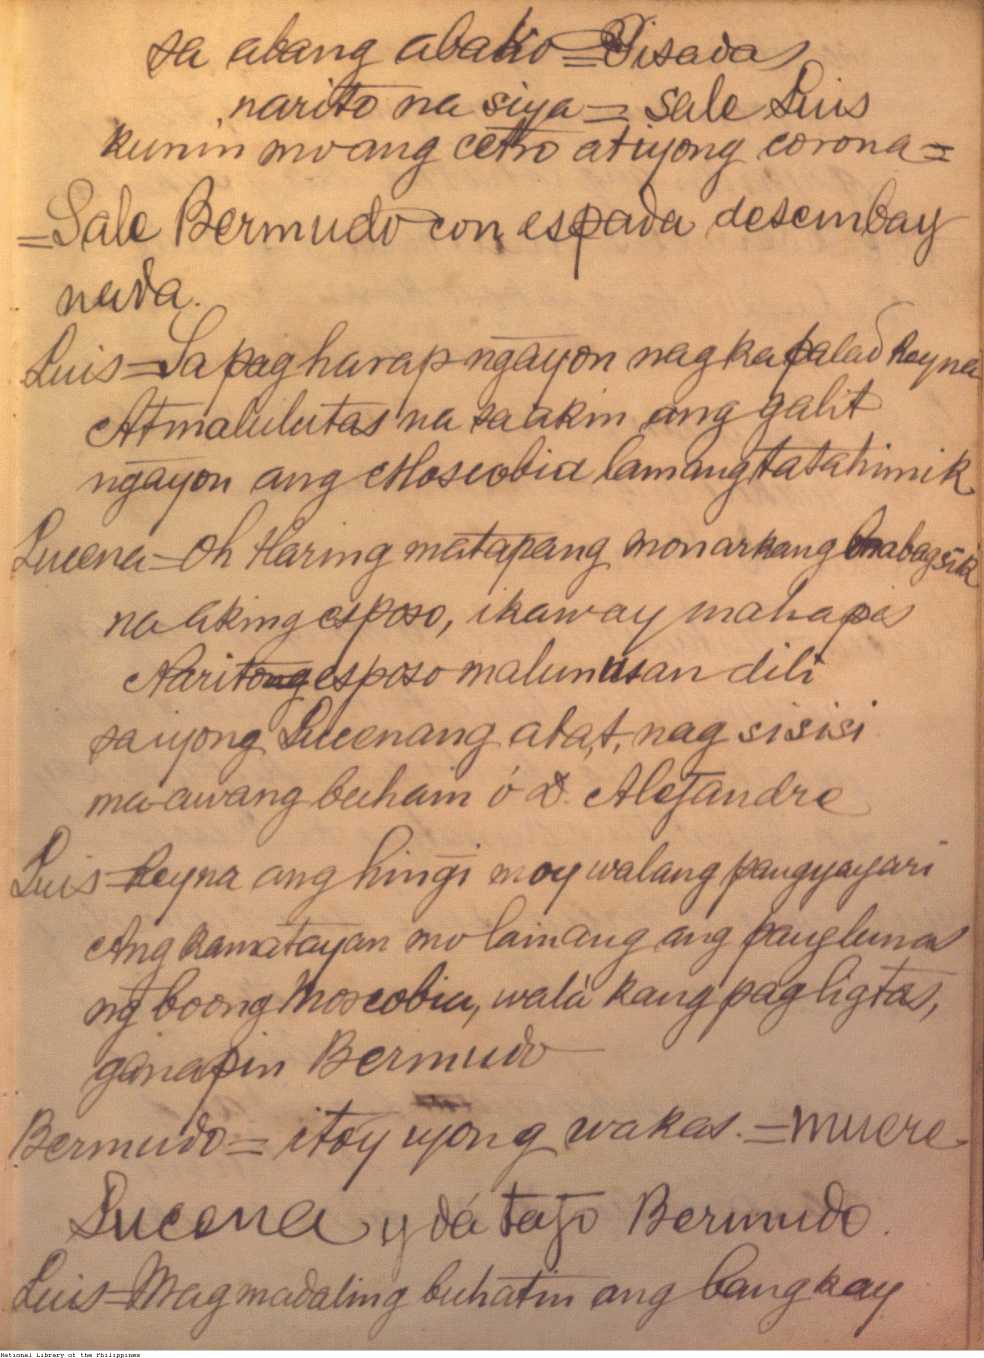 sa abang abako = Pisadas
narito na siya = sale Luis
kunin mo ang cetro at iyong corona =
= Sale Bermudo con espada desembay
nada.
Luis = Sa pag harap ngayon nag kapalad Reyna
At malulutas na sa akin ang galit
ngayon ang Moscobia lamang tatahimik
Lucena = Oh Haring matapang monarkang mabagsik
na aking esposo, ikaw ay mahapis
Naritong esposo malunusan dili
sa iyong Lucenang aba,t, nag sisisi
ma-awang buhain ó D. Alejandre
Luis = Reyna ang hingi moy walang pangyayari
Ang kamatayan mo lamang ang panglunas
ng boong Moscobia, wala kang pag ligtas,
ganapin Bermudo
Bermudo = itoy iyong wakas. = muere
Lucena y dá tajo Bermudo.
Luis = Mag madaling buhatin ang bangkay
National Library of the Philippines